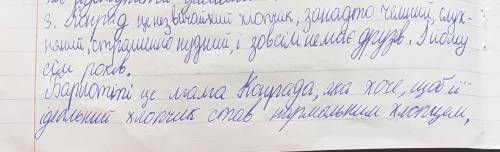 3. Конрад це незвичайний хлопчик, занадто чемний, слух-
няний, страшенно нудний, і зовсім немає друзів. Йому
сім років.
Бартолотті це мама Конрада, яка хоче, щоб її
ідеальний хлопчик став нормальним хлопцем,